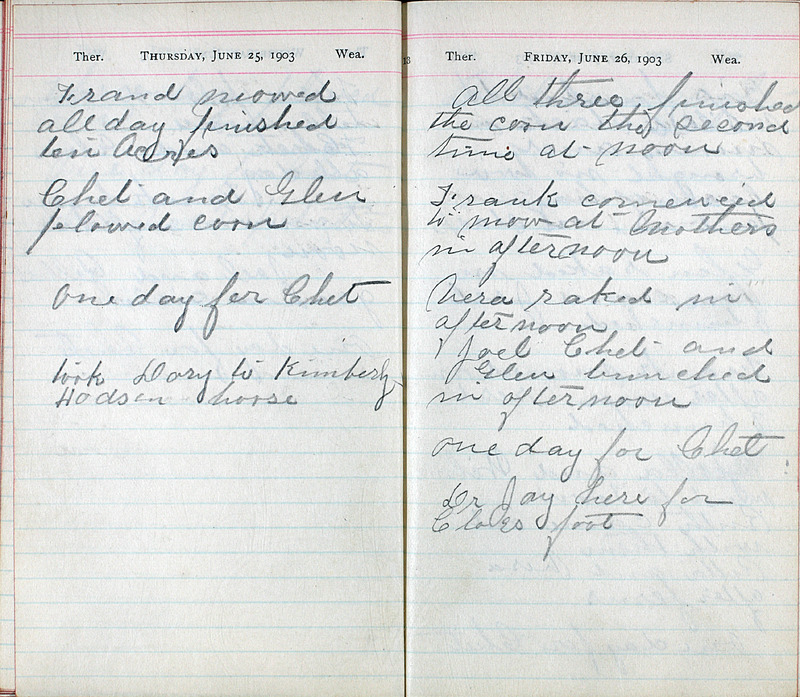 Ther. Thursday, June 25, 1903 Wea.
Frand mowed
all day finished
ten Acres
Chet and Glen
plowed corn
one day for Chet
took Dory to Kimberly
Hodson horse
Ther. Friday, June 26, 1903 Wea.
All three finished
the corn the second
time at noon
Frank comencied
to mow at Mothers
in afternoon
Vera raked in
afternoon
Joel Chet and
Glen bunched
in afternoon
one day for Chet
Dr Jay here for
Cloes foot